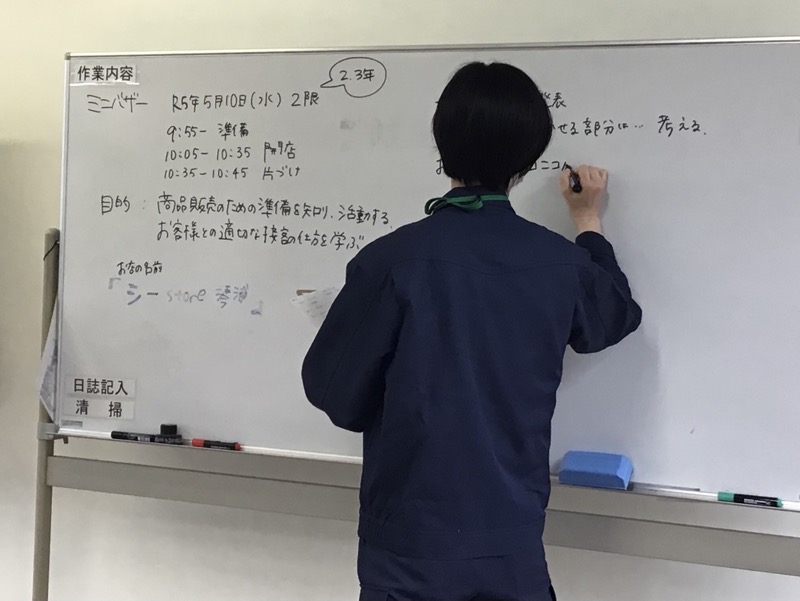 作業内容
ミニバザー R5年5月10日(水) 2限
2.3年
9:55- 準備
10:05-10:35 開店
10:35-10:45 片づけ
目的: 商品販売のための準備を知り、活動する。
お客様との適切な接客の仕方を学ぶ
お店の名前
『シーstore 湾
日誌記入
清掃
表
せる部分は… 考える。
お ニコ